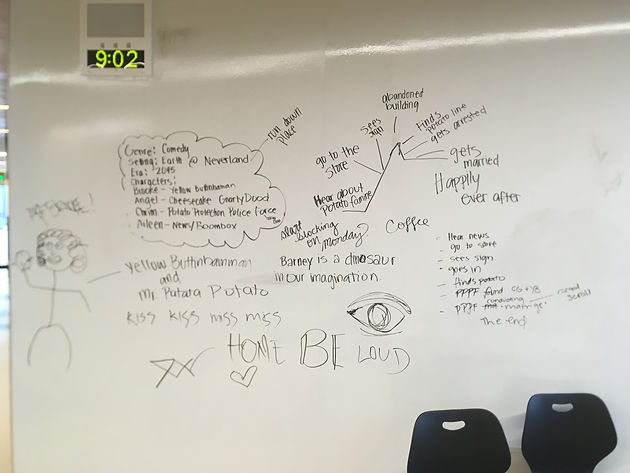 9:02
Genre: Comedy
Setting: Earth @ Neverland
Era: 2045
Characters:
Brooke - Yellow Buttinhamman
Angel - Cheesecake Gnarly Dood
- Potato Protection Police Force
Aileen - News/Boombox
run down
place
Hear about
potato famine
go to the
store
Sees
sign
abandoned
building
Finds
potato line
gets arrested
gets
married
Happily
ever after
start
blocking
on monday?
Coffee
Yellow Buttinhamman
and
Mr. Patata Potato
Barney is a dinosaur
in our imagination.
KISS KISS miss miss
HOME BE LOUD
- Hear news
- go to store
- sees sign
- goes in
- finds potato
- PPPF find CG + YB
- PPPF conducting matrige
read
scroll
The end